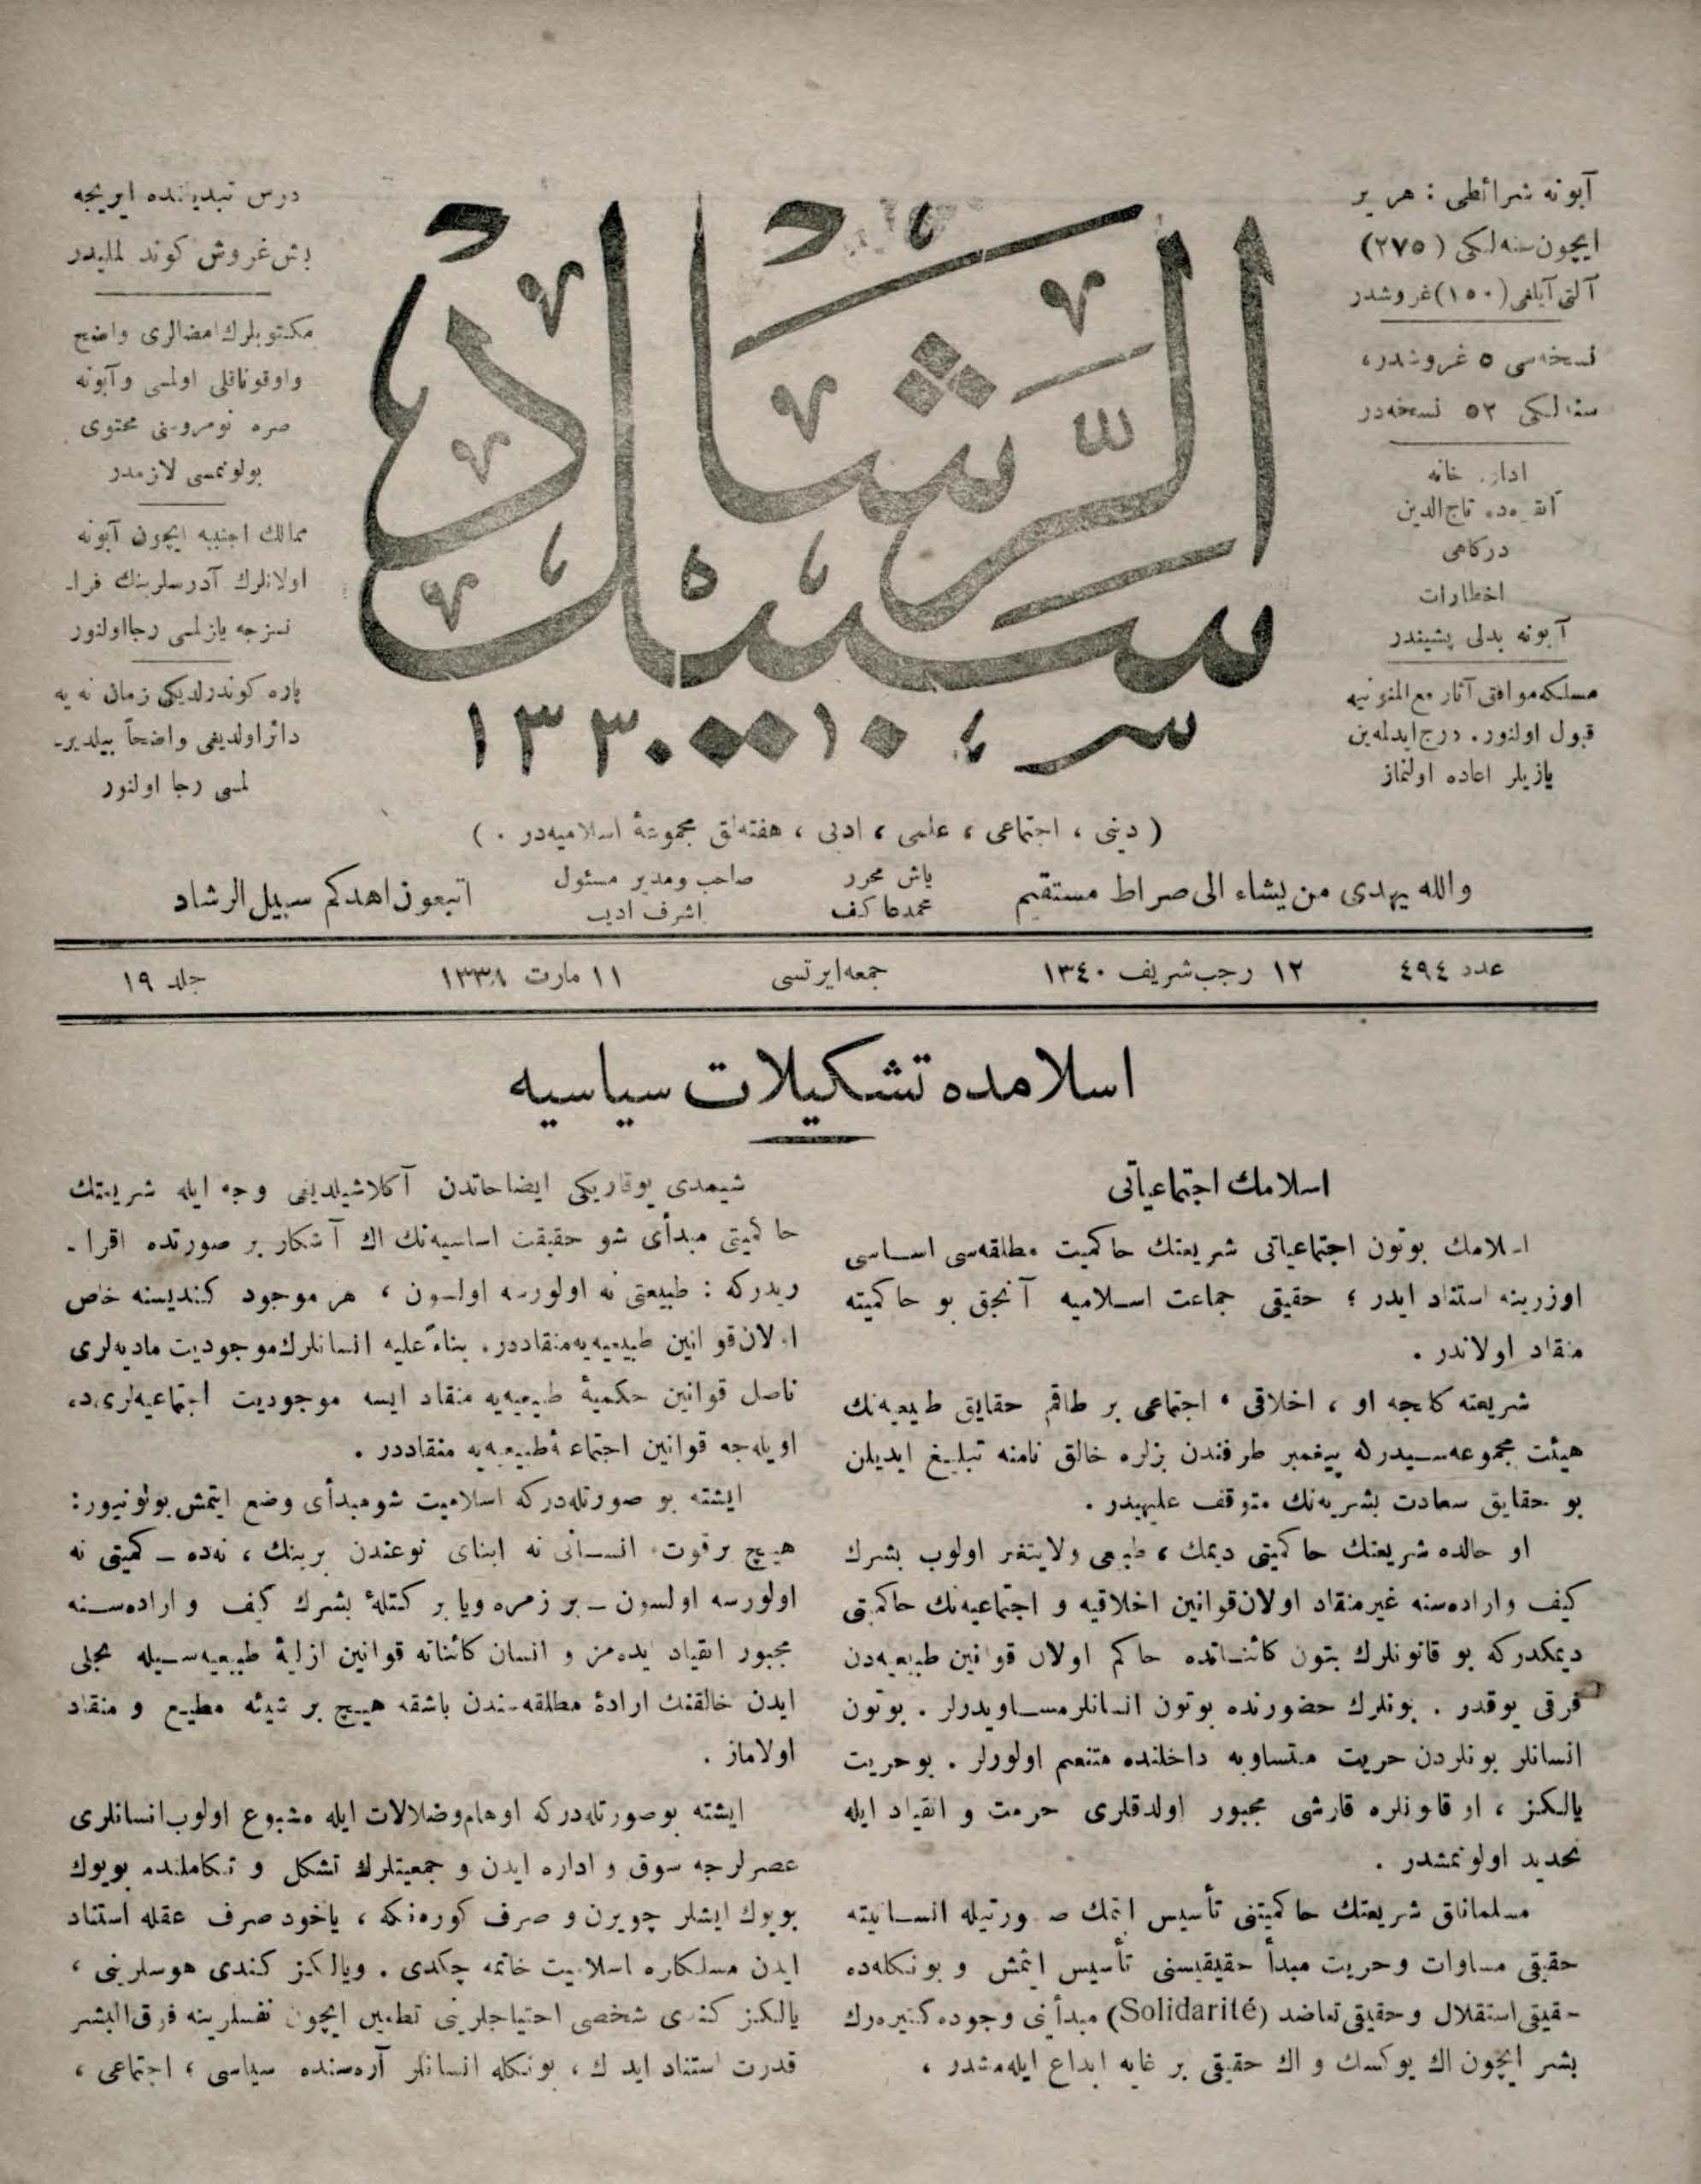 آبونه شرائطی : هر یر
ایچون سنه‌لکی (۲۷۵)
آلتی آیلغی (۱۵۰) غروشدر
نسخه‌سی ۵ غروشدر،
سنه‌لکی ۵۲ نسخه‌در
اداره خانه
آنقره‌ده تاج‌الدین
درکاهی
اخطارات
آبونه بدلی پشیندر
مسلکه موافق آثار مع‌الممنونیه
قبول اولنور. درج ایدلمه‌ین
یازیلر اعاده اولنماز
سبیل الرشاد
سر ١٣٣٠
درس تبدیلنده ایریجه
بش غروش کوندرلملیدر
مکتوبلرك امضالری واضح
واوقوناقلی اولمسی وآبونه
صره نومروسنی محتوی
بولونمسی لازمدر
ممالك اجنبیه ایچون آبونه
اولانلرك آدرسلرینك فرا-
نسزجه یازلمسی رجا اولنور
پاره کوندرلدیکی زمان نه‌یه
دائر اولدیغی واضحاً بیلدیر-
لمسی رجا اولنور
( دینی ، اجتماعی ، علمی ، ادبی ، هفته‌لق مجموعهٔ اسلامیه‌در . )
والله یهدی من یشاء الی صراط مستقیم
باش محرر
محمد عاکف
صاحب ومدیر مسئول
اشرف ادیب
اتبعون اهدکم سبیل الرشاد
عدد ٤٩٤ ١٢ رجب شریف ١٣٤٠ جمعه‌ایرتسی ١١ مارت ١٣٣٨ جلد ١٩
اسلامده تشکیلات سیاسیه
اسلامك اجتماعیاتی
اسلامك بوتون اجتماعیاتی شریعتك حاکمیت مطلقه‌سی اساسی
اوزرینه استناد ایدر ؛ حقیقی جماعت اسلامیه آنجق بو حاکمیته
منقاد اولاندر .
شریعته کلنجه او ، اخلاقی ، اجتماعی بر طاقم حقایق طبیعیه‌نك
هیئت مجموعه‌سیدرکه پیغمبر طرفندن بزلره خالق نامنه تبلیغ ایدیلن
بو حقایق سعادت بشریه‌نك متوقف علیهیدر .
او حالده شریعتك حاکمیتی دیمك ، طبیعی ولایتغیر اولوب بشرك
کیف واراده‌سنه غیرمنقاد اولان قوانین اخلاقیه و اجتماعیه‌نك حاکمیتی
دیمکدرکه بو قانونلرك بتون کائناتده حاکم اولان قوانین طبیعیه‌دن
فرقی یوقدر . بونلرك حضورنده بوتون انسانلر مساویدرلر . بوتون
انسانلر بونلردن حریت متساویه داخلنده متنعم اولورلر . بوحریت
یالکز ، او قانونلره قارشی مجبور اولدقلری حرمت و انقیاد ایله
تحدید اولونمشدر .
مسلمانلق شریعتك حاکمیتنی تأسیس ایتمك صورتیله انسانیته
حقیقی مساوات وحریت مبدأ حقیقیسنی تأسیس ایتمش و بونکله‌ده
حقیقی استقلال وحقیقی تعاضد (Solidarité) مبدأنی وجوده کتیره‌رك
بشر ایچون اك یوکسك و اك حقیقی بر غایه ابداع ایله‌مشدر ،
شیمدی یوقاریکی ایضاحاتدن آکلاشیلدیغی وجه ایله شریعتك
حاکمیتی مبدأی شو حقیقت اساسیه‌نك اك آشکار بر صورتده اقرا-
ریدرکه : طبیعتی نه اولورسه اولسون ، هر موجود کندیسنه خاص
اولان قوانین طبیعیه‌یه منقاددر . بناءً علیه انسانلرك موجودیت مادیه‌لری
ناصل قوانین حکمیهٔ طبیعیه‌یه منقاد ایسه موجودیت اجتماعیه‌لری‌ده
اویله‌جه قوانین اجتماعیهٔ طبیعیه‌یه منقاددر .
ایشته بو صورتله‌درکه اسلامیت شو مبدأی وضع ایتمش بولونیور :
هیچ بر قوت انسانی نه ابنای نوعندن برینك ، نه‌ده ــ کمیتی نه
اولورسه اولسون ــ بر زمره ویا بر کتلهٔ بشرك کیف و اراده‌سنه
مجبور انقیاد ایده‌مز و انسان کائناته قوانین ازلیهٔ طبیعیه‌سیله تجلی
ایدن خالقنك ارادهٔ مطلقه‌سندن باشقه هیچ بر شیئه مطیع و منقاد
اولاماز .
ایشته بوصورتله‌درکه اوهام وضلالات ایله مشبوع اولوب انسانلری
عصرلرجه سوق و اداره ایدن و جمعیتلرك تشکل و تکاملنده بویوك
بویوك ایشلر چویرن و صرف کوره‌نکه ، یاخود صرف عقله استناد
ایدن مسلکلره اسلامیت خاتمه چکدی . ویالکز کندی هوسلرینی ،
یالکز کندی شخصی احتیاجلرینی تطمین ایچون نفسلرینه فوق‌البشر
قدرت استناد ایدرك ، بونکله انسانلر آره‌سنده سیاسی ، اجتماعی ،